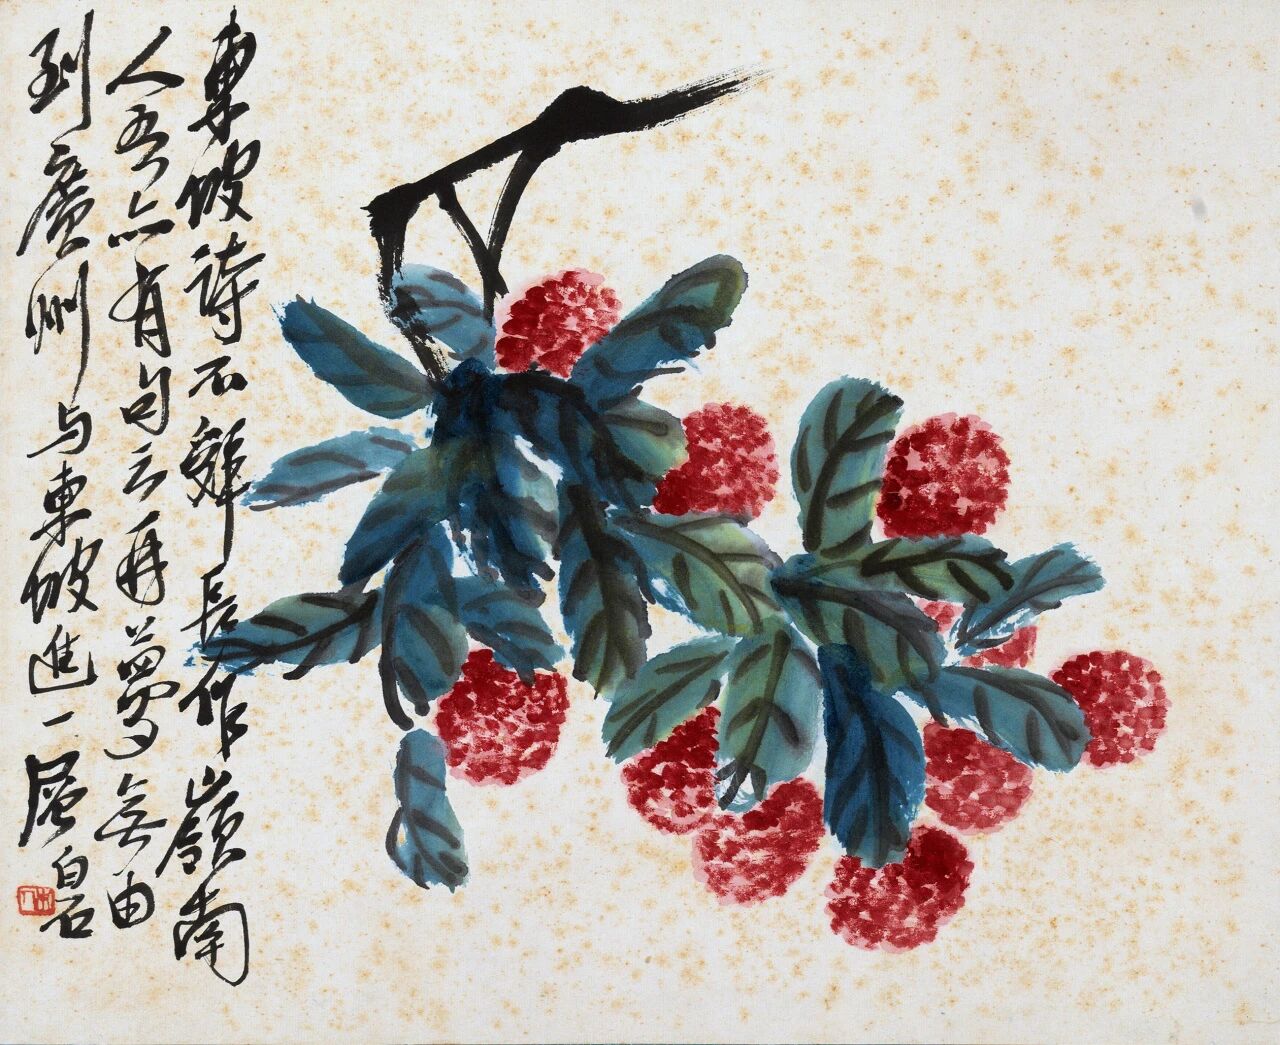 東坡詩不辤長作嶺南
人吾亦有句云再夢無由
到廣州与東坡進一層白石